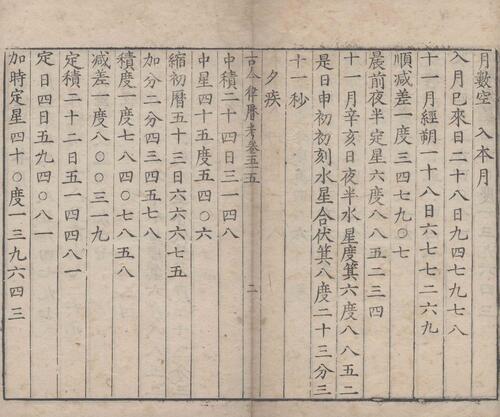 月數空　入本月
入月已來日二十八日九四七九七八
十一月經朔　十八日六七七二六九
順減差一度三四七九〇七
晨前夜半定星六度八八五二三四
十一月辛亥日夜半水星度箕六度八八五二
是日申初初刻水星合伏箕八度二十三分三
十一秒
夕疾
古今律曆考卷五十五　二
中積二十四日三一四八
中星四十五度五四〇六
縮初曆五十三日六六六七五
加分二分四三四五七八
積度一度七八四〇七八五八
減差一度八〇〇三一九
定積二十二日五一四四八一
定日四日五九四〇八一
加時定星四十〇度一三九六四三